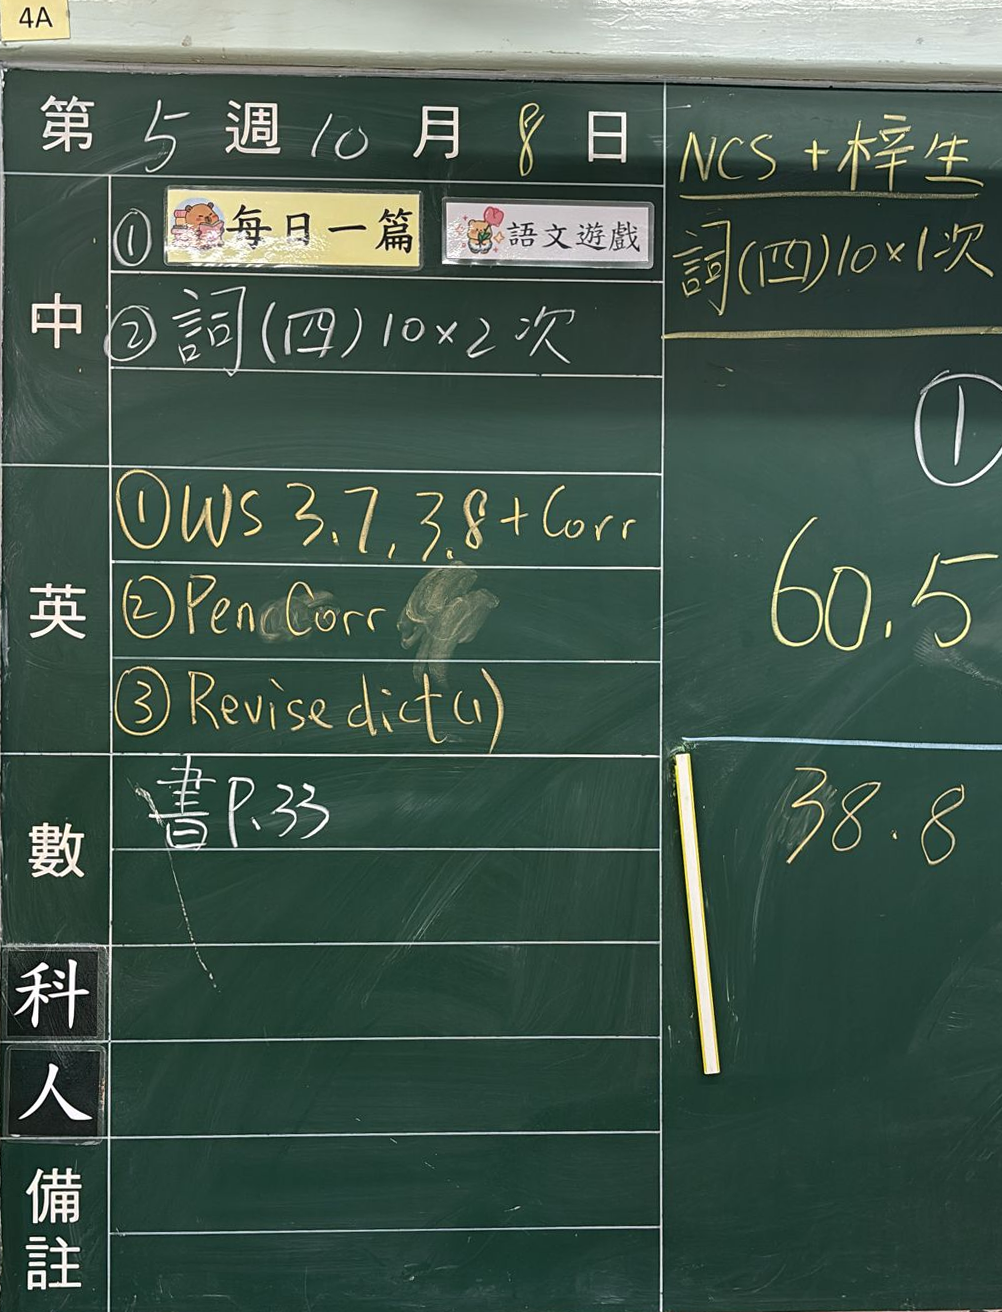 4A
第 5 週 10 月 8 日
中
① 每日一篇 語文遊戲
② 詞(四)10×2次
英
① WS 3.7, 3.8 + Corr
② Pen Corr
③ Revise dict(1)
數
書P.33
科
人
備註
NCS + 梓生
詞(四)10×1次
①
60.5
38.8